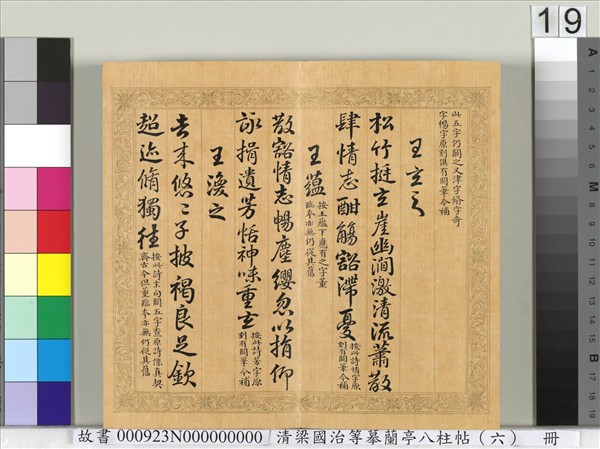 19
此五字仍闕之又津字脩字奇
字暢字原刻俱有闕筆今補
王玄之
松竹挺玄崖幽澗激清流蕭散
肆情志酣觴豁滯憂
按此詩情字原
刻有闕筆今補
王蘊
按王蘊下應有之字董
臨本亦無仍從其舊
散豁情志暢塵纓忽以捐仰
詠挹遺芳怡神味重玄
按此詩芳字原
刻有闕筆今補
王渙之
去來悠〻子披褐良足欽
超迹脩獨往
按此詩末句闕五字查原詩係真契
齊古今但董臨本亦無仍從其舊
故書 000923N000000000 清梁國治等摹蘭亭八柱帖(六) 冊